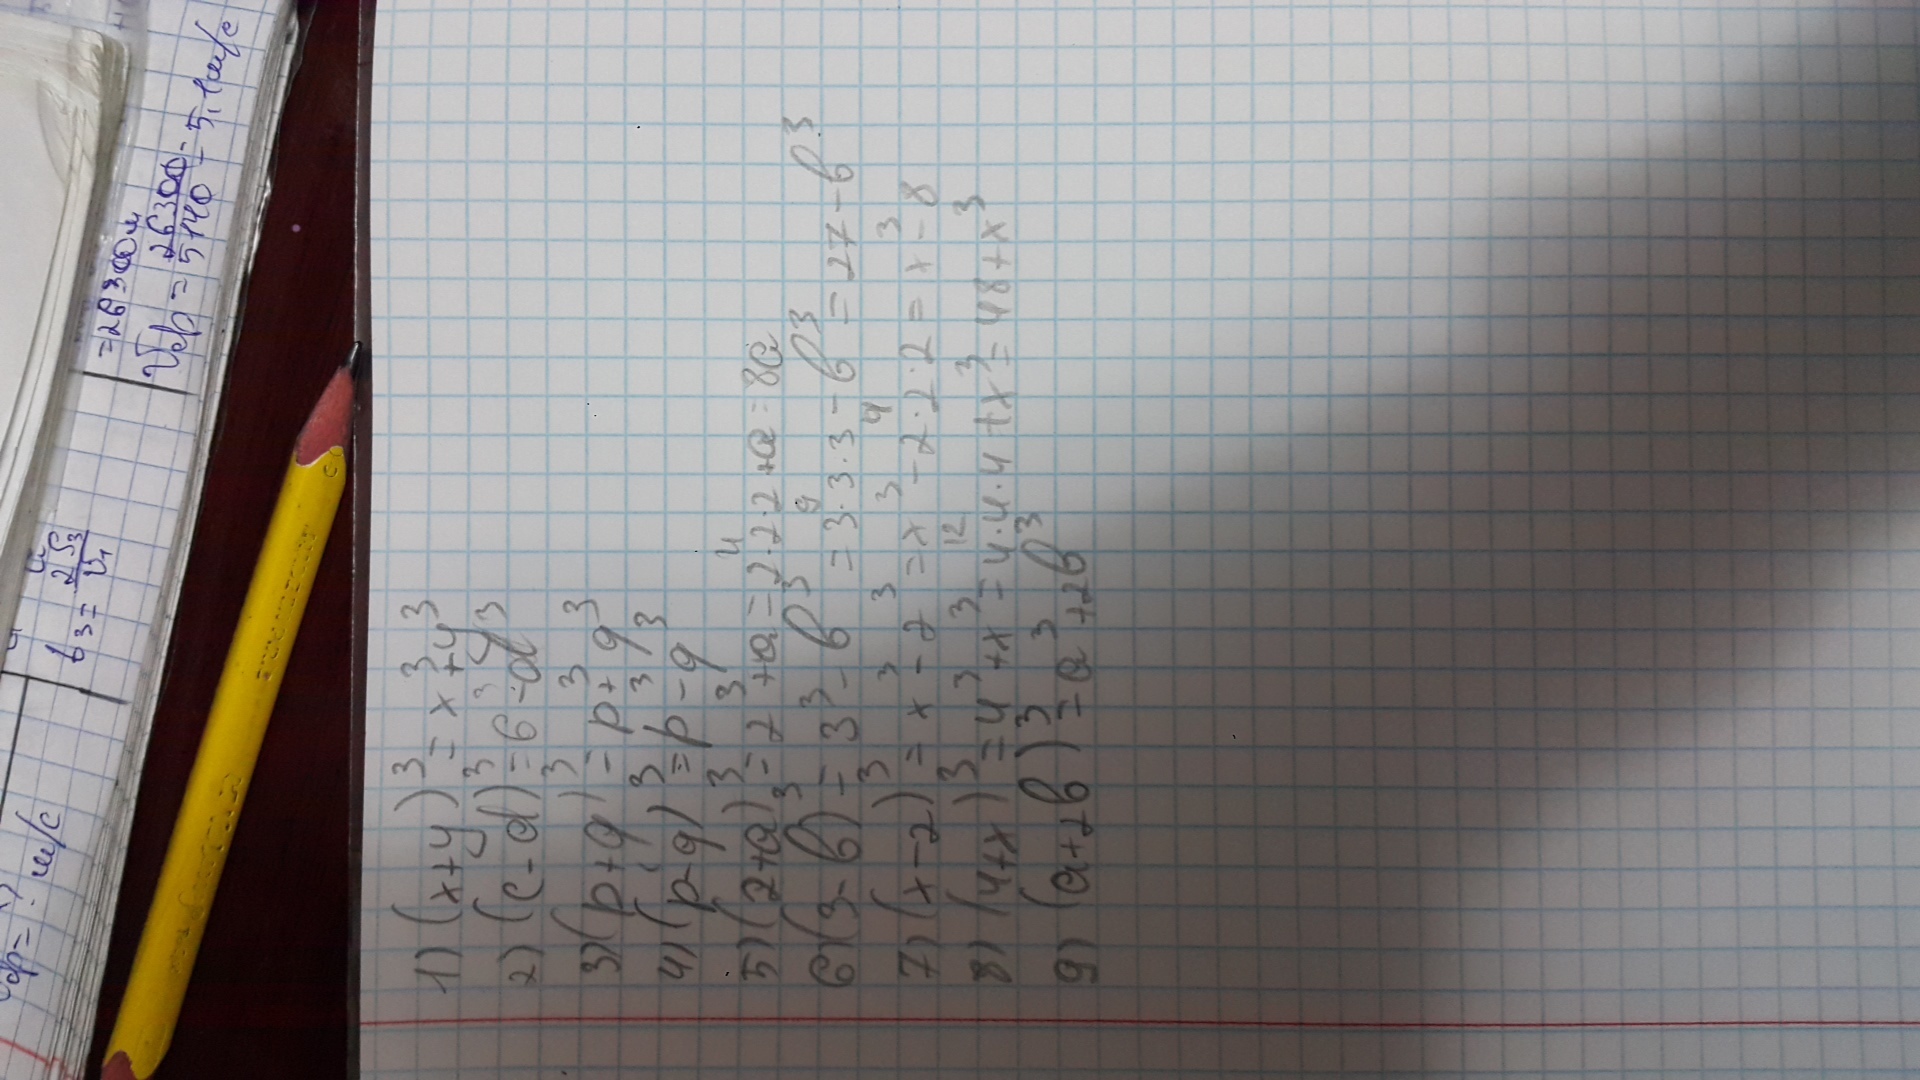 1) (x+y)³ = x³+y³
2) (c-d)³ = c³-d³
3) (p+q)³ = p³+q³
4) (p-q)³ = p³-q³
5) (2+a)³ = 2³+a = 2·2·2+a = 8a
6) (3-b)³ = 3³-b³ = 3·3·3-b³ = 27-b³
7) (x-2)³ = x³-2³ = x³-2·2·2 = x³-8
8) (4+x)³ = 4³+x³ = 4·4·4+x³ = 48+x³
9) (a+2b)³ = a³+2b³
=26300м
Vср = 26300/5140 = 5,1м/с
t3 = 2S3/V1
м/с